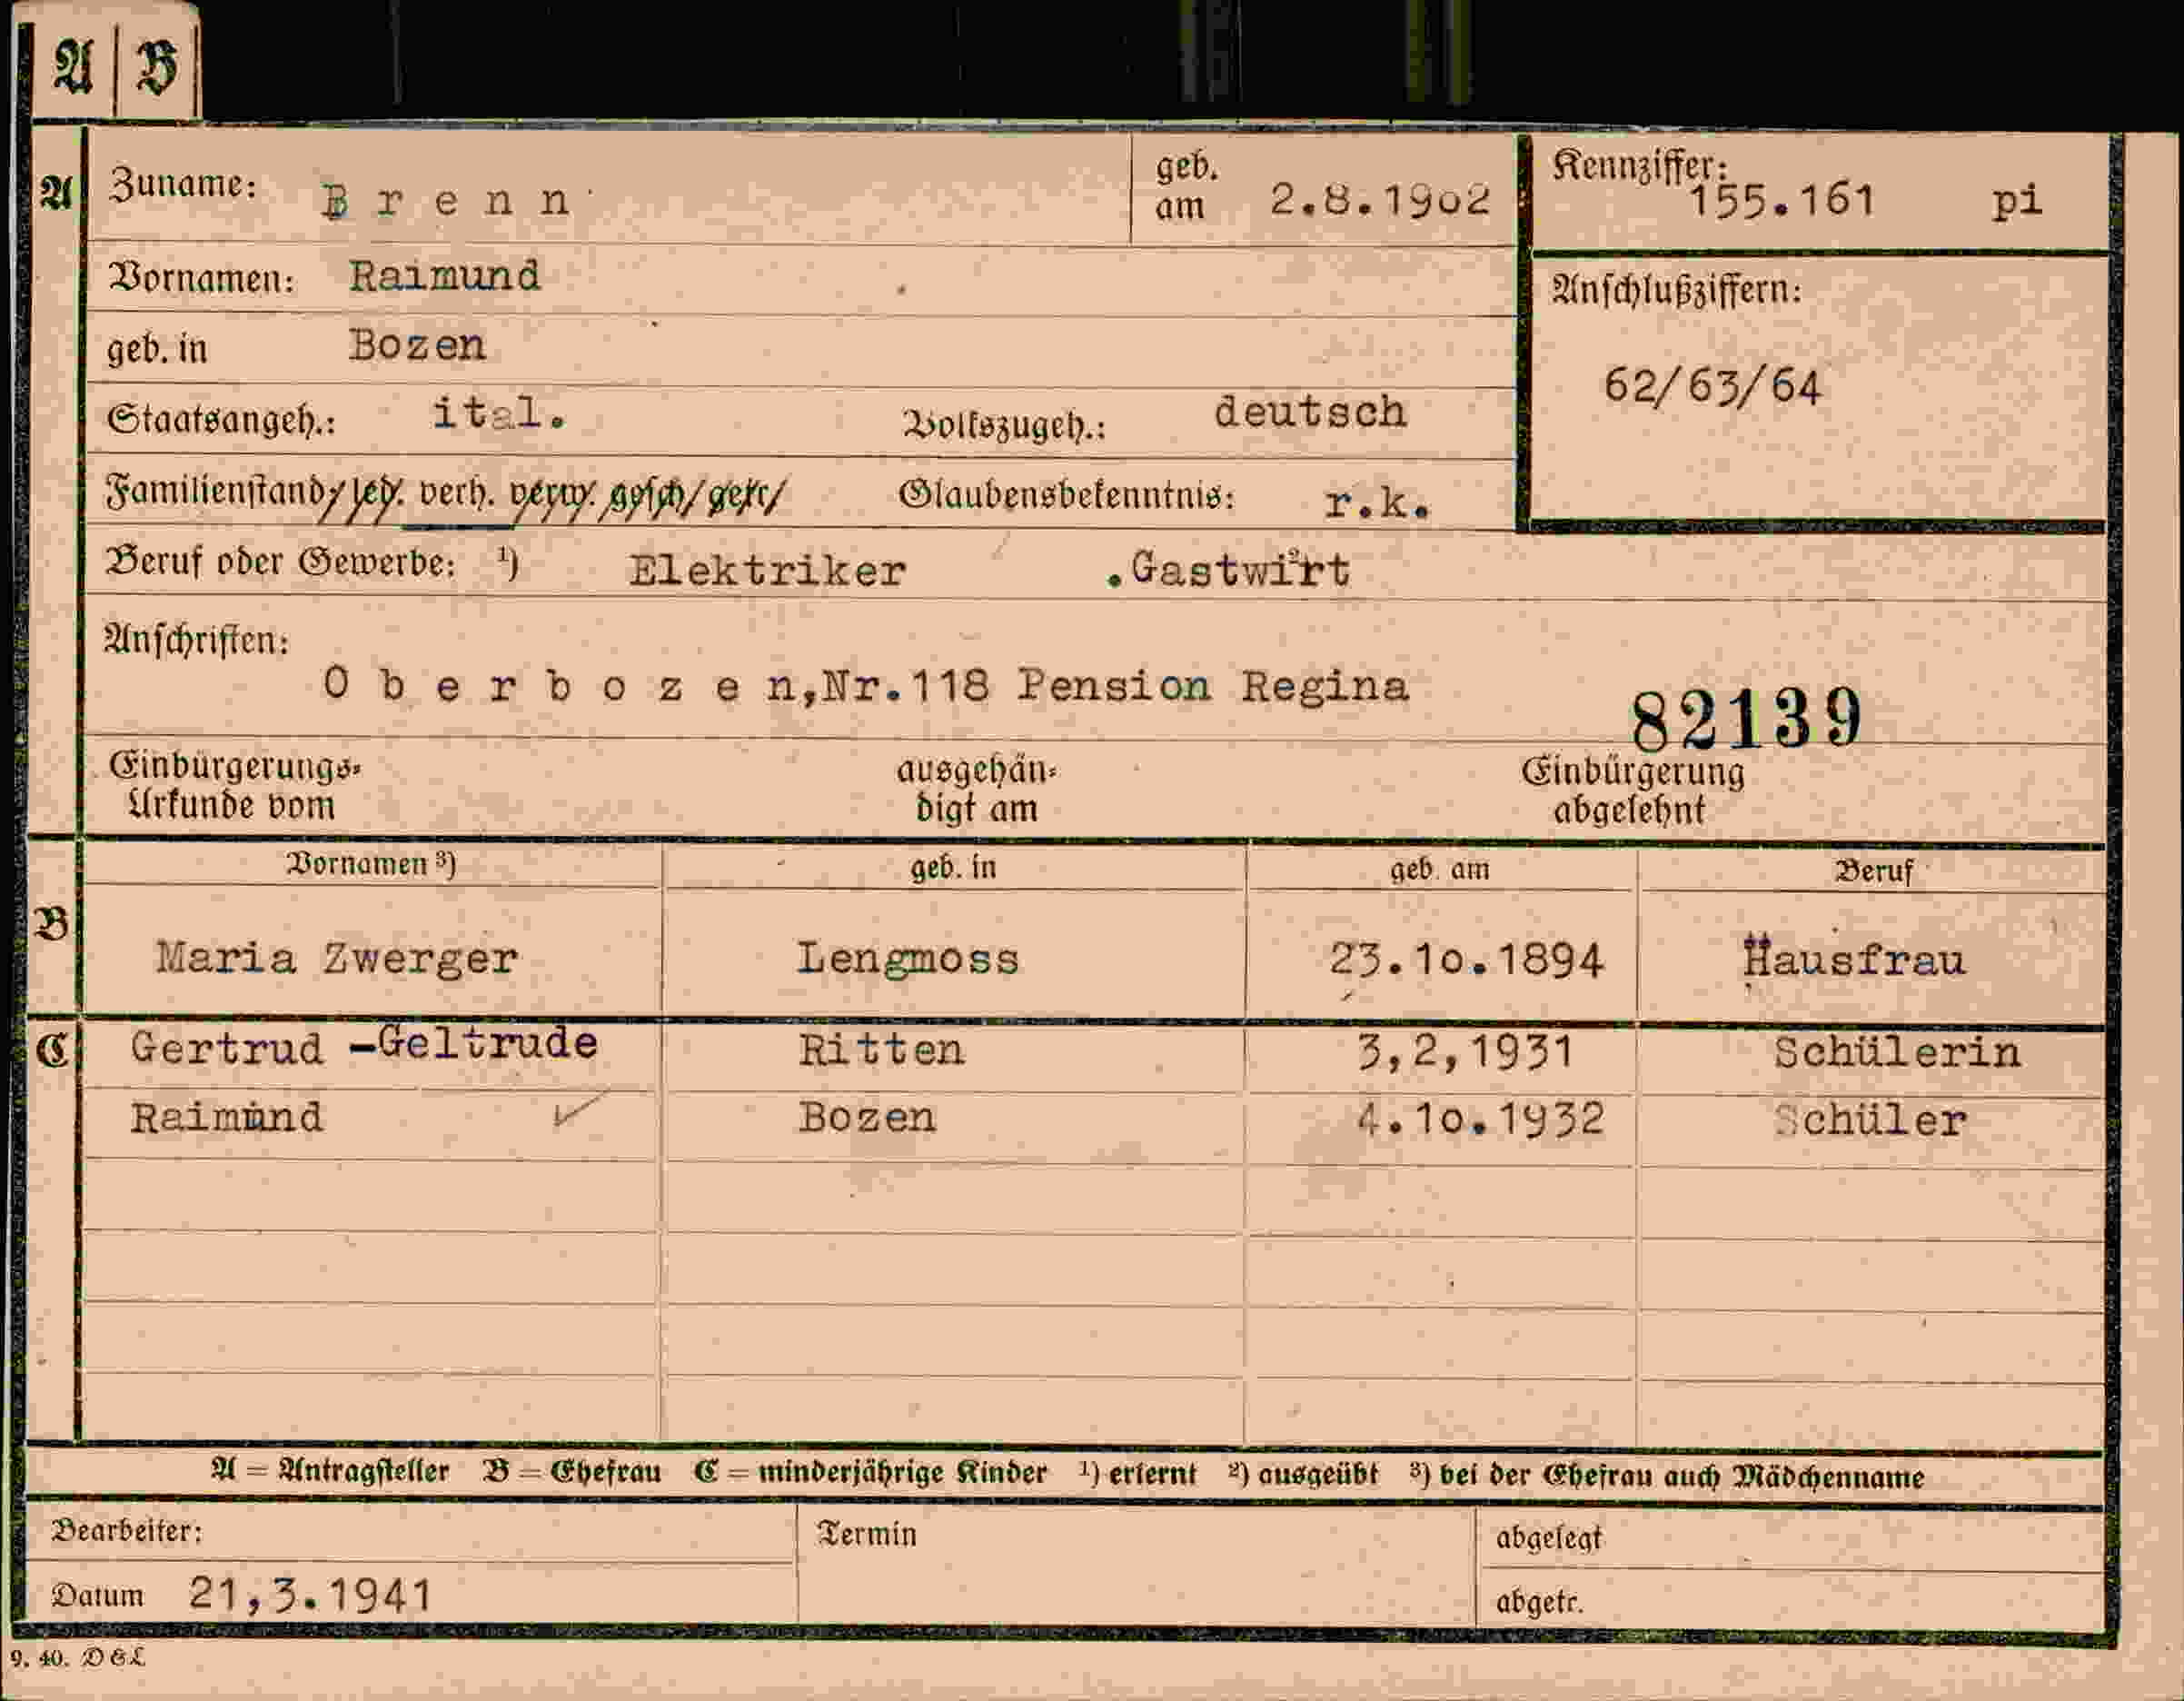 A | B
A Zuname: Brenn geb. am 2.8.1902 Kennziffer: 155.161 pi
Vornamen: Raimund Anschlußziffern:
geb. in Bozen 62/63/64
Staatsangeh.: ital. Volkszugeh.: deutsch
Familienstand/ led. verh. verw. gesch/ getr/ Glaubensbekenntnis: r.k.
Beruf oder Gewerbe: ¹) Elektriker ²) .Gastwirt
Anschriften:
Oberbozen,Nr.118 Pension Regina
82139
Einbürgerungs= ausgehän= Einbürgerung
Urkunde vom digt am abgelehnt
Vornamen ³) geb. in geb. am Beruf
B Maria Zwerger Lengmoss 23.10.1894 Hausfrau
C Gertrud -Geltrude Ritten 3,2,1931 Schülerin
Raimund Bozen 4.10.1932 Schüler
A = Antragsteller B = Ehefrau C = minderjährige Kinder ¹) erlernt ²) ausgeübt ³) bei der Ehefrau auch Mädchenname
Bearbeiter: Termin abgelegt
Datum 21,3.1941 abgetr.
9. 40. D&L